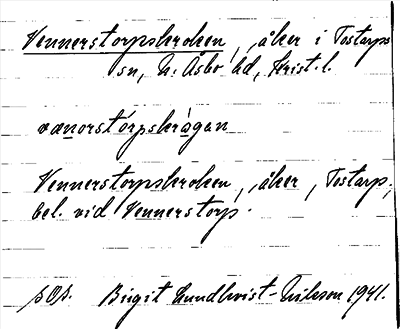 Vennerstorpskroken, åker i Tostarps
sn, N. Åsbo hd, Krist. l.
vænorstórpskrågan
Vennerstorpskroken, åker, Tostarp,
bel. vid Vennerstorp.
sOs. Birgit Lundkvist-Nilsson 1941.